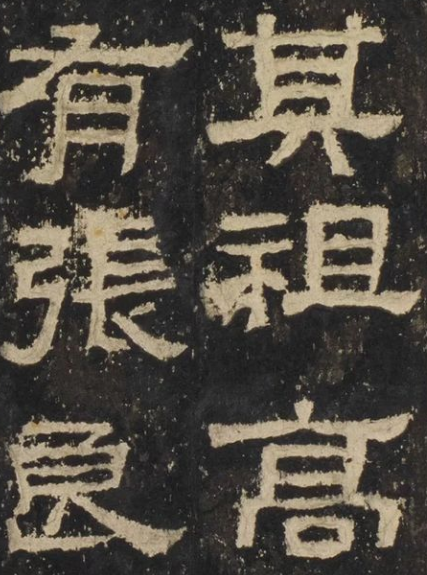 其祖高
有張良